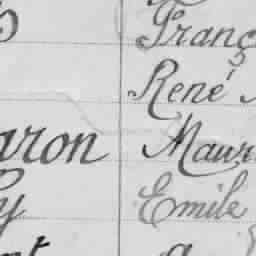 Franç
René
aron Maur
y Emile
nt